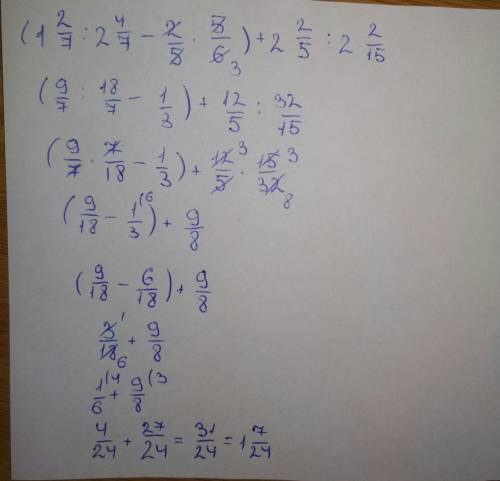 (1 2/7 : 2 4/7 - 2/5 · 5/6 3) + 2 2/5 : 2 2/15
(9/7 : 18/7 - 1/3) + 12/5 : 32/15
(9/7 · 7/18 - 1/3) + 12 3/5 · 15 3/32 8
(9/18 - 1(6/3) + 9/8
(9/18 - 6/18) + 9/8
3 1/18 6 + 9/8
1(4/6 + 9(3/8
4/24 + 27/24 = 31/24 = 1 7/24